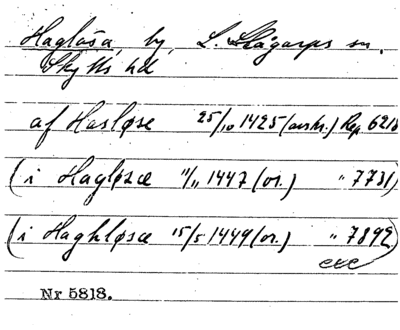 Haglösa, by, L. Slågarps sn.
Skytts hd
af Hasløse 25/10 1425 (avskr.) Rep 6218
(i Hagløsæ 11/11 1447 (or.) " 7731)
(i Haghløsæ 15/5 1449 (or.) " 7892)
etc
Nr 5818.